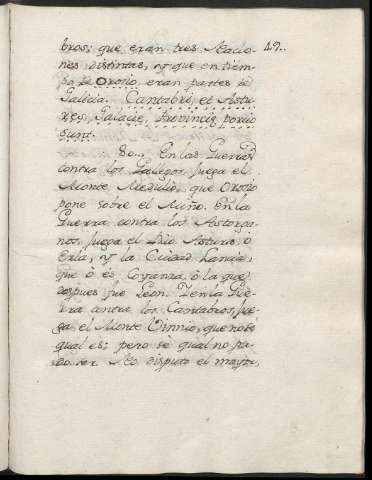 bros; que eran tres Nacio- 49..
nes distintas, y que en tiem-
po de Orosio, eran partes de
Galicia. Cantabri, et Astu-
res, Galacię, Provincię portio
sunt.
80.. En las Guerras
contra los Gallegos, juega el
Monte Medulio, que Orosio
pone sobre el Miño. En la
Guerra contra los Astorga-
nos, juega el Rio Astura, ò
Ezla, y la Ciudad Lancia,
que ò es Coyanza, ò la que
despues fue Leon. I en la Gue-
rra contra los Cantabros, jue-
ga el Monte Vinnio, que no sè
qual es; pero sè qual no pu-
do ser. No disputo el mayor,